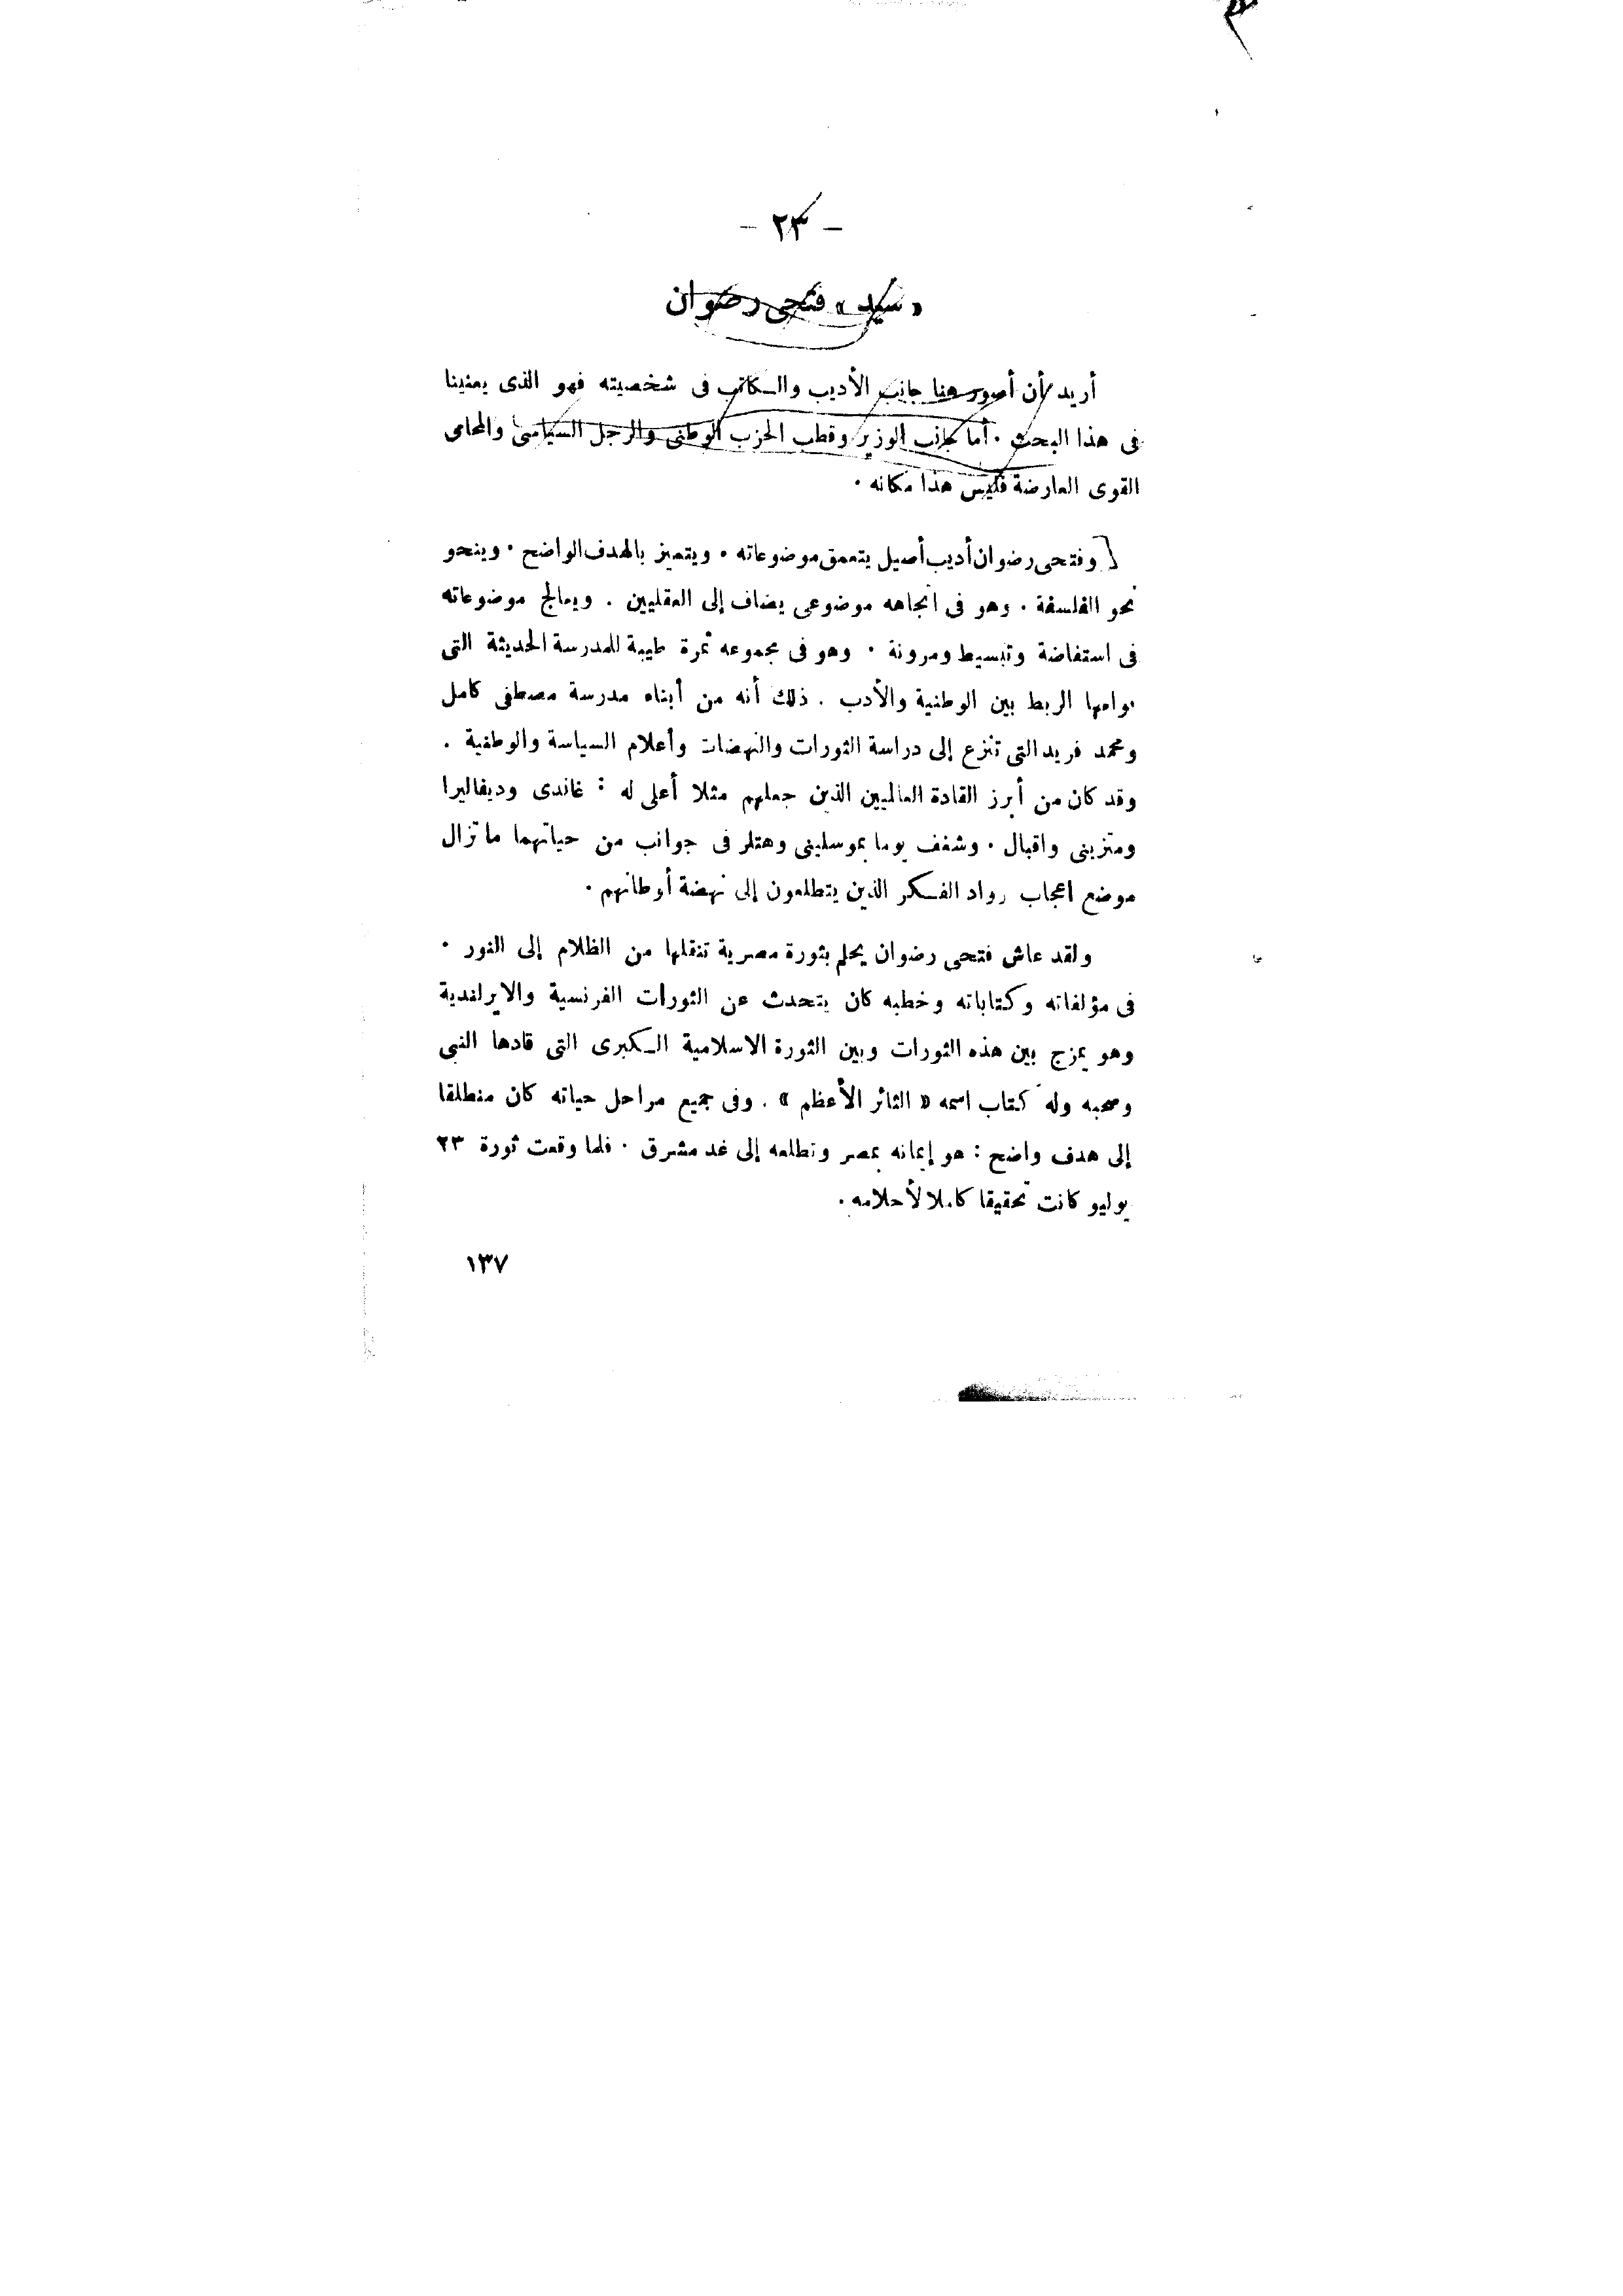 - ٢٣ -
« سيد » فتحى رضوان
أريد أن أصور هنا جانب الأديب والكاتب فى شخصيته فهو الذى يعنينا
فى هذا البحث . أما جانب الوزير وقطب الحزب الوطنى والرجل السياسى والمحامى
القوى العارضة فليس هذا مكانه .
[ وفتحى رضوان أديب أصيل يتعمق موضوعاته . ويتميز بالهدف الواضح . وينحو
نحو الفلسفة . وهو فى اتجاهه موضوعى يضاف إلى العقليين . ويعالج موضوعاته
فى استفاضة وتبسيط ومرونة . وهو فى مجموعه ثمرة طيبة للمدرسة الحديثة التى
قوامها الربط بين الوطنية والأدب . ذلك أنه من أبناء مدرسة مصطفى كامل
ومحمد فريد التى تنزع إلى دراسة الثورات والنهضات وأعلام السياسة والوطنية .
وقد كان من أبرز القادة العالميين الذين جعلهم مثلا أعلى له : غاندى وديفاليرا
ومتزينى واقبال . وشغف يوما بموسلينى وهتلر فى جوانب من حياتهما ما تزال
موضع اعجاب رواد الفكر الذين يتطلعون إلى نهضة أوطانهم .
ولقد عاش فتحى رضوان يحلم بثورة مصرية تنقلها من الظلام إلى النور .
فى مؤلفاته وكتاباته وخطبه كان يتحدث عن الثورات الفرنسية والايرلندية
وهو يمزج بين هذه الثورات وبين الثورة الاسلامية الكبرى التى قادها النبى
وصحبه وله كتاب اسمه « الثائر الأعظم » . وفى جميع مراحل حياته كان منطلقا
إلى هدف واضح : هو إيمانه بمصر وتطلعه إلى غد مشرق . فلما وقعت ثورة ٢٣
يوليو كانت تحقيقا كاملا لأحلامه .
١٣٧